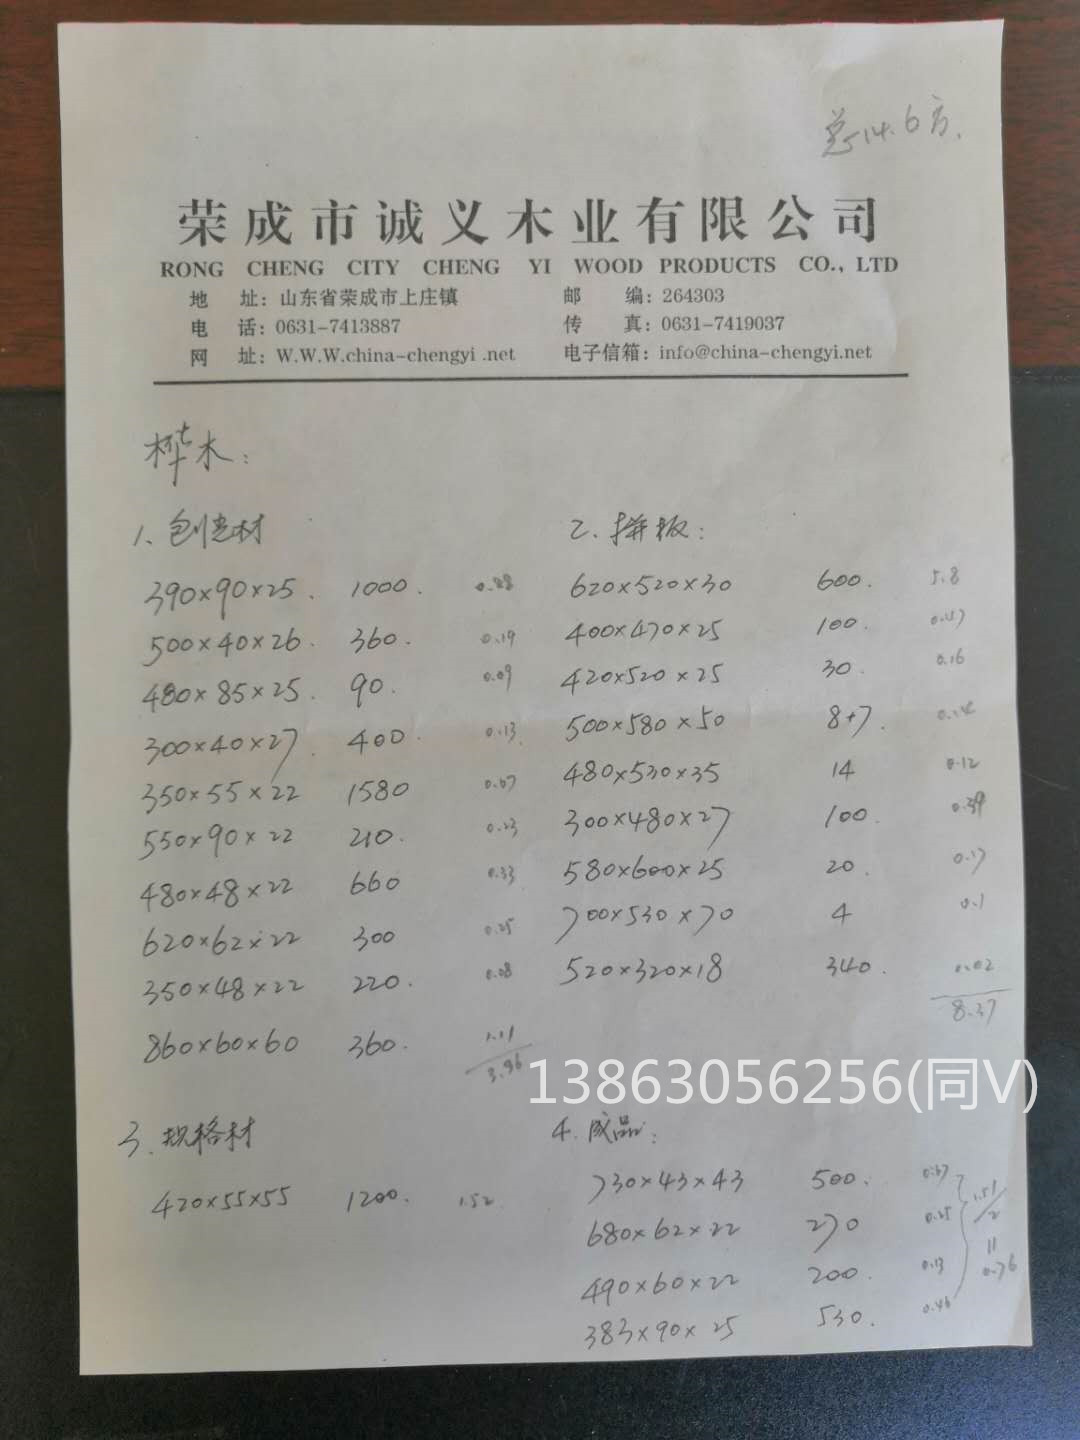 总14.6方.
荣成市诚义木业有限公司
RONG CHENG CITY CHENG YI WOOD PRODUCTS CO., LTD
地 址: 山东省荣成市上庄镇 邮 编: 264303
电 话: 0631-7413887 传 真: 0631-7419037
网 址: W.W.W.china-chengyi .net 电子信箱: info@china-chengyi.net
桦木:
1、刨光材
390×90×25. 1000. 0.88
500×40×26. 360. 0.19
480×85×25. 90. 0.09
300×40×27. 400. 0.13
350×55×22 1580 0.67
550×90×22 210. 0.23
480×48×22 660 0.33
620×62×22 300 0.25
350×48×22 220. 0.08
860×60×60 360. 1.11
3.96
2. 拼板:
620×520×30 600. 5.8
400×470×25 100. 0.47
420×520×25 30. 0.16
500×580×50 8+7.
480×530×35 14 0.12
300×480×27 100. 0.39
580×600×25 20. 0.17
700×530×70 4 0.1
520×320×18 340. 1.02
8.37
13863056256(同V)
3. 规格材
420×55×55 1200. 1.52
4. 成品:
730×43×43 500. 0.67
680×62×22 270 0.25
490×60×22 200. 0.13
383×90×25 530. 0.46
1.51/2
11
0.76